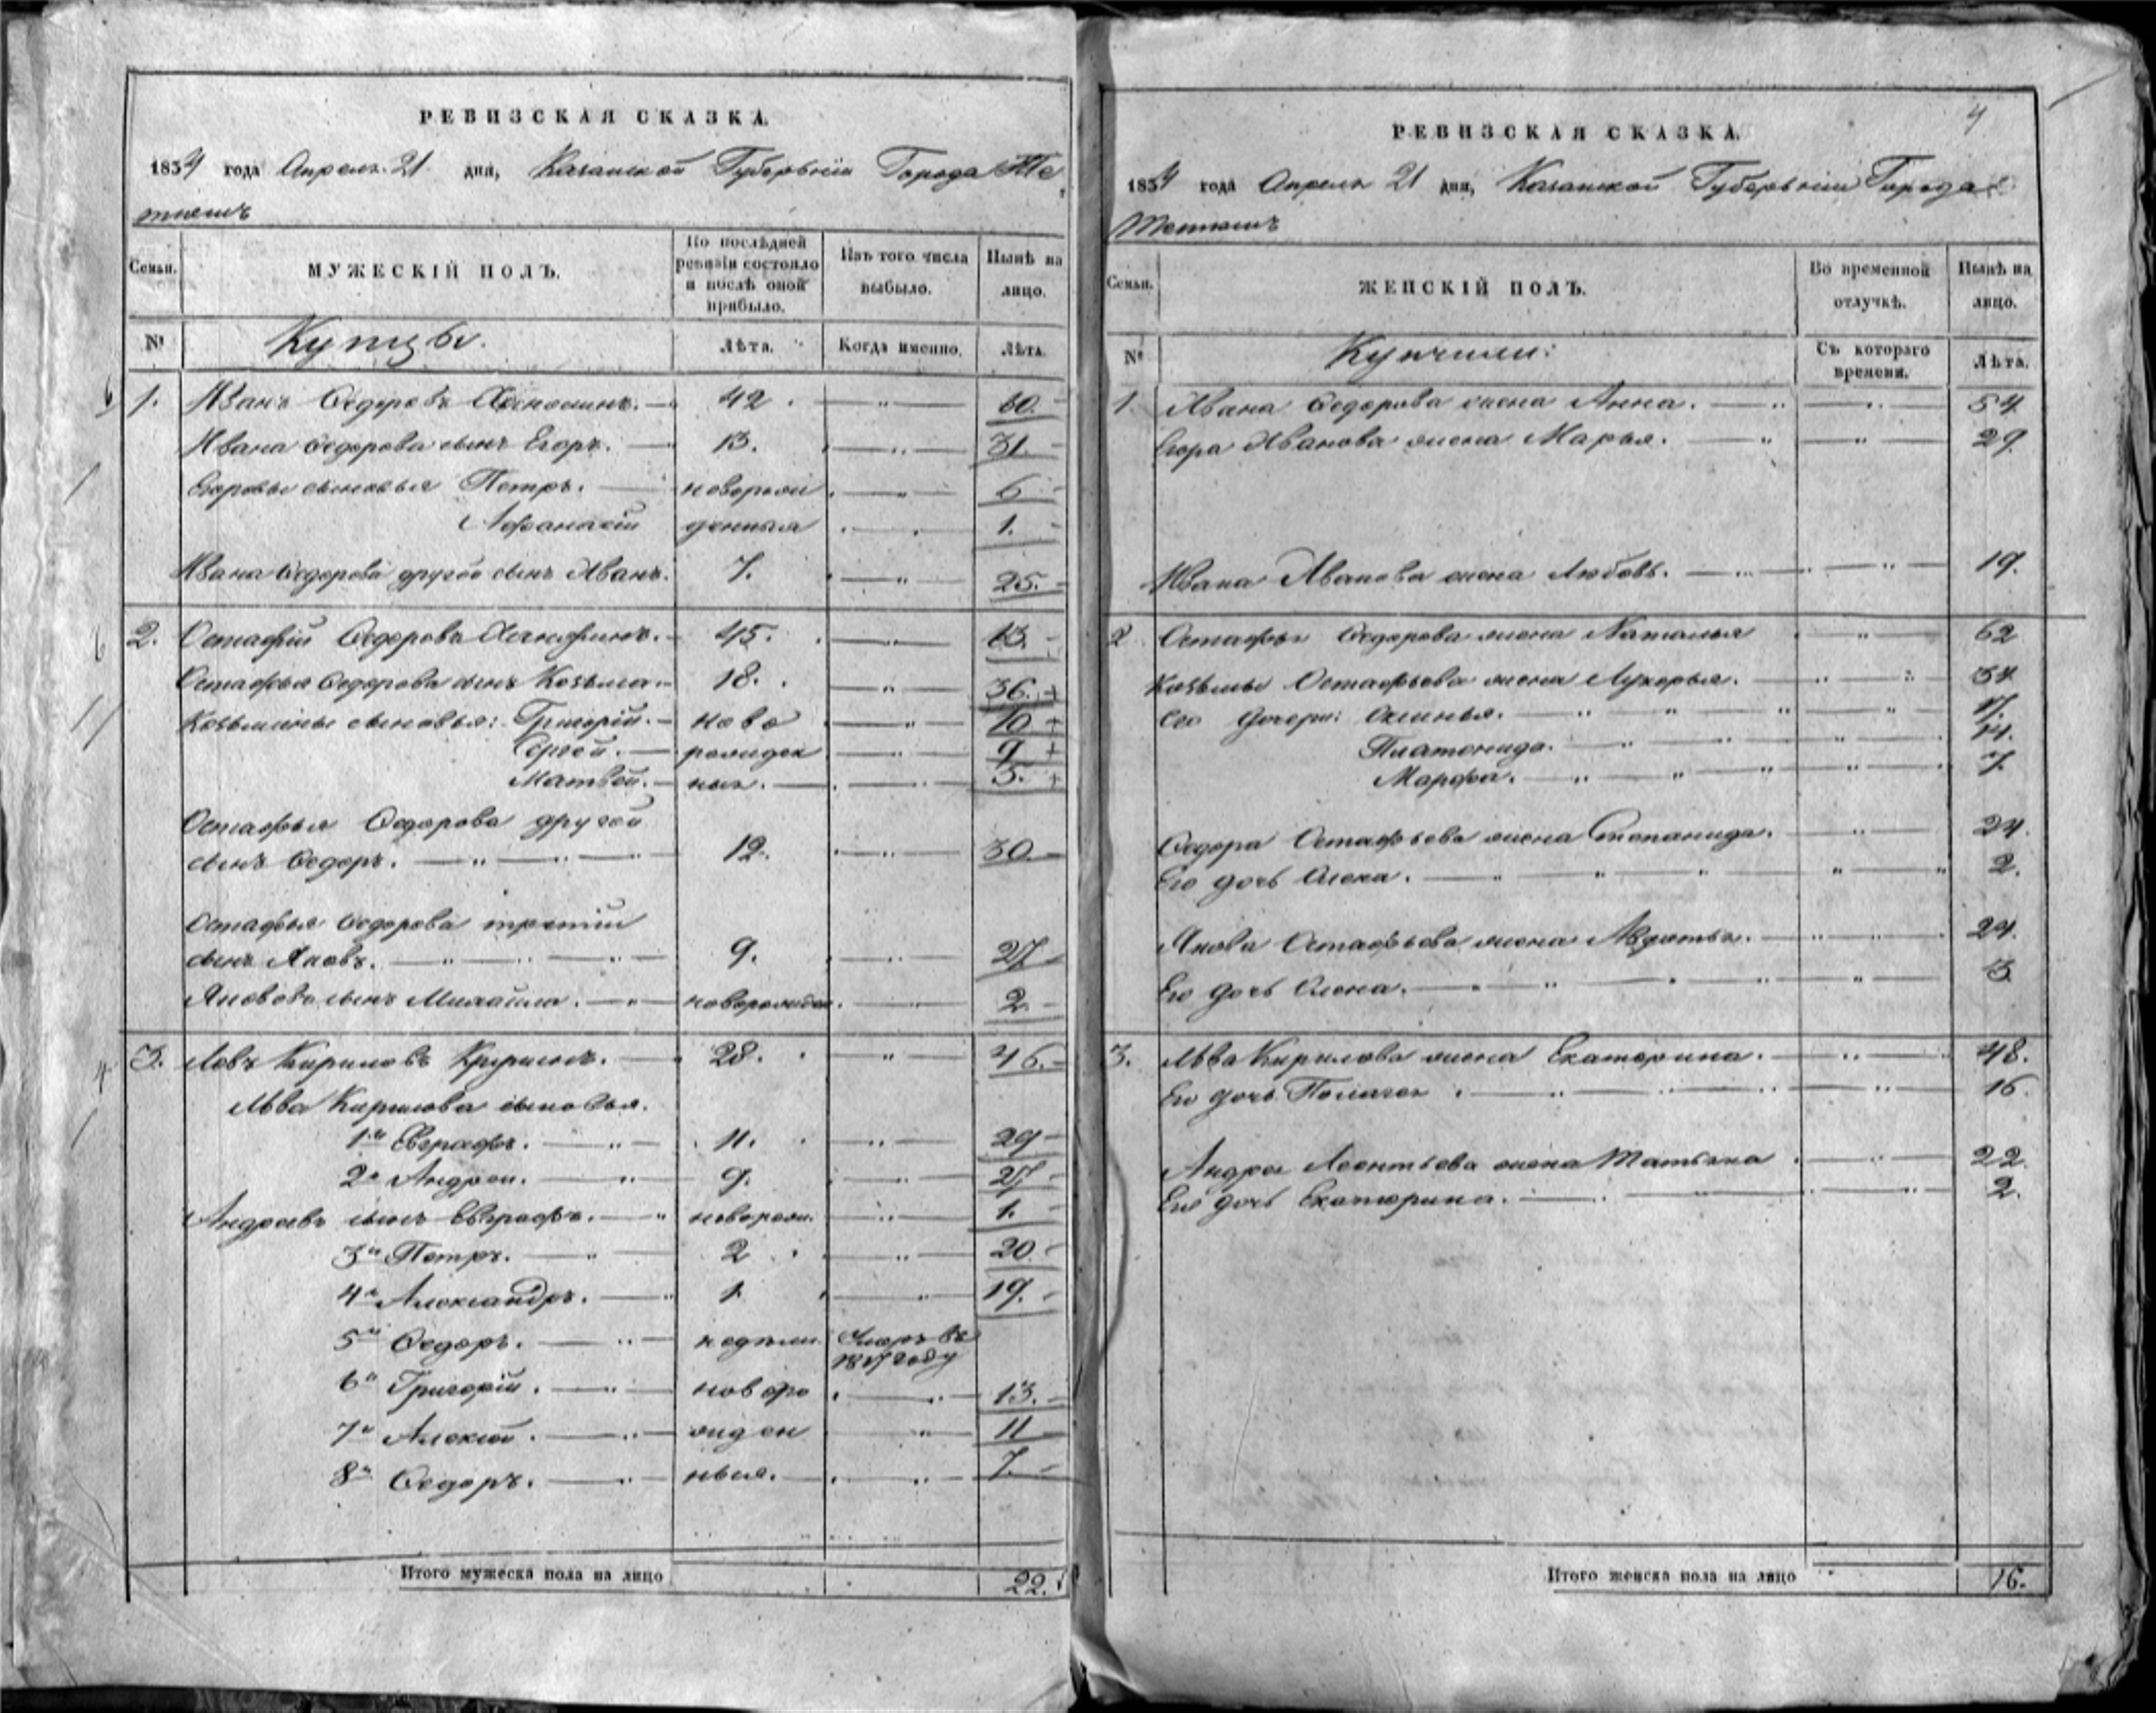 РЕВИЗСКАЯ СКАЗКА.
1834 года Апреля 21 дня, Казанской Губерніи Города Те
тюшъ
Семьи. МУЖЕСКІЙ ПОЛЪ. По послѣдней ревизіи состояло и послѣ оной прибыло. Изъ того числа выбыло. Нынѣ на лицо.
№ Купцы. Лѣта. Когда именно. Лѣта.
1. Иванъ Ѳедоровъ 42. 60.
Ивана Ѳедорова сынъ Егоръ. 13. 31.
Егоровы сыновья Петръ. новорож 6
Афанасій денныя 1.
Ивана Ѳедорова другой сынъ Иванъ. 7. 25.
2. Остафій Ѳедоровъ 45. 63.
Остафья Ѳедорова сынъ Козьма. 18. 36.
Козьмины сыновья: Григорій. ново 10
Сергей. рожден 9
Матвей. ныя. 5.
Остафья Ѳедорова другой
сынъ Ѳедоръ. 12. 30.
Остафья Ѳедорова третій
сынъ Яковъ. 9. 27
Яковова сынъ Михайла. новорожден 2
3. Левъ Кириловъ 28. 46.
Льва Кирилова сыновья.
1й Евграфъ. 11. 29
2й Андрей. 9. 27
Андреевъ сынъ Евграфъ. новорож. 1.
3й Петръ. 2 20.
4й Александръ. 1. 19.
5й Ѳедоръ. недели Умеръ въ
1817 году
6й Григорій. новоро 13.
7й Алексей. жден 11
8й Ѳедоръ. ныя. 7.
Итого мужеска пола на лицо 22.
4
РЕВИЗСКАЯ СКАЗКА.
1834 года Апреля 21 дня, Казанской Губерніи Города
Тетюшъ
Семьи. ЖЕНСКІЙ ПОЛЪ. Во временной отлучкѣ. Нынѣ на лицо.
№ Съ котораго времени. Лѣта.
1 Ивана Ѳедорова жена Анна. 54
Егора Иванова жена Марья. 29
Ивана Иванова жена Любовь. 19.
2 Остафья Ѳедорова жена Наталья 62
Козьмы Остафьева жена Лукерья. 34
Его дочери: 17.
Платонида. 14.
Марфа. 7
Ѳедора Остафьева жена Степанида. 24.
Его дочь Олена. 2.
Якова Остафьева жена Авдотья. 24.
Его дочь Олена. 3
3. Льва Кирилова жена Екатерина. 48.
Его дочь Пелагея 16
Андрея Леонтьева жена Татьяна 22.
Его дочь Екатерина. 2.
Итого женска пола на лицо 16.